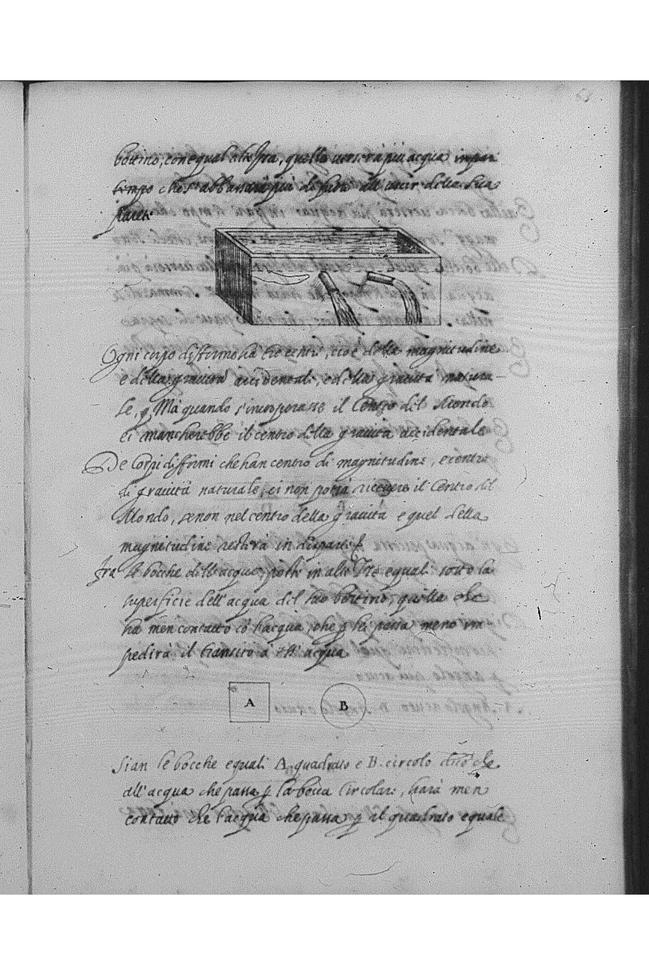 bottino, con equal altezza, quella verserà più acqua in pari
tempo che s'abbasserà più di sotto all' della sua
parte
Ogni corpo difforme ha tre centri, cioè della magnitudine
e della gravità accidentale, e della gravità natura-
le, Ma quando s'incorporasse il Centro del Mondo
ei mancherebbe il centro della gravità accidentale
De Corpi difformi che han centro di magnitudine, e centro
di gravità naturale, ei non potrà ricevere il Centro del
Mondo, se non nel centro della gravità e quel della
magnitudine resterà in disparte
fra le bocche dell'acque, poste in altezze equali sotto la
superficie dell'acqua del suo bottino, quella che
ha men contatto cò l'acqua, che p lei passa meno im
pedirà il transito a ess' acqua
A B
Sian le bocche equali A quadrato e B. circolo dico che
all'acqua che passa p la bocca Circolare, harà men
contatto che l'acqua che passa p il quadrato equale